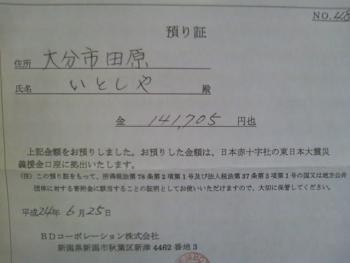 NO.
預り証
住所 大分市田原
氏名 いとしや 殿
金 141,705 円也
上記金額をお預りしました。お預りした金額は、日本赤十字社の東日本大震災
義援金口座に拠出いたします。
(注)この預り証をもって、所得税法第78条第2項第1号及び法人税法第37条第3項第1号の国又は地方公共
団体に対する寄附金に該当することの証明としてお使いいただけますので、大切に保管してください。
平成24年6月25日
BDコーポレーション株式会社
新潟県新潟市秋葉区新津4462番地3